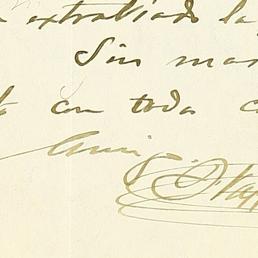 extraviado la
Sin mas
con toda c
Amig.